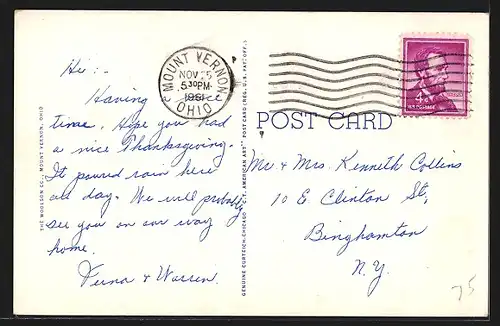 Hi:-
Having a nice
time. Hope you had
a nice Thanksgiving.
It poured rain here
all day. We will probably
see you on our way
home.
Verna & Warren.
THE WOOLSON CO., MOUNT VERNON, OHIO
GENUINE CURTEICH-CHICAGO "C.T. AMERICAN ART" POST CARD (REG. U.S. PAT. OFF.)
MOUNT VERNON
NOV 25
530PM
1961
OHIO
POST CARD
Mr. & Mrs. Kenneth Collins
10 E. Clinton St,
Binghamton
N.Y.
75